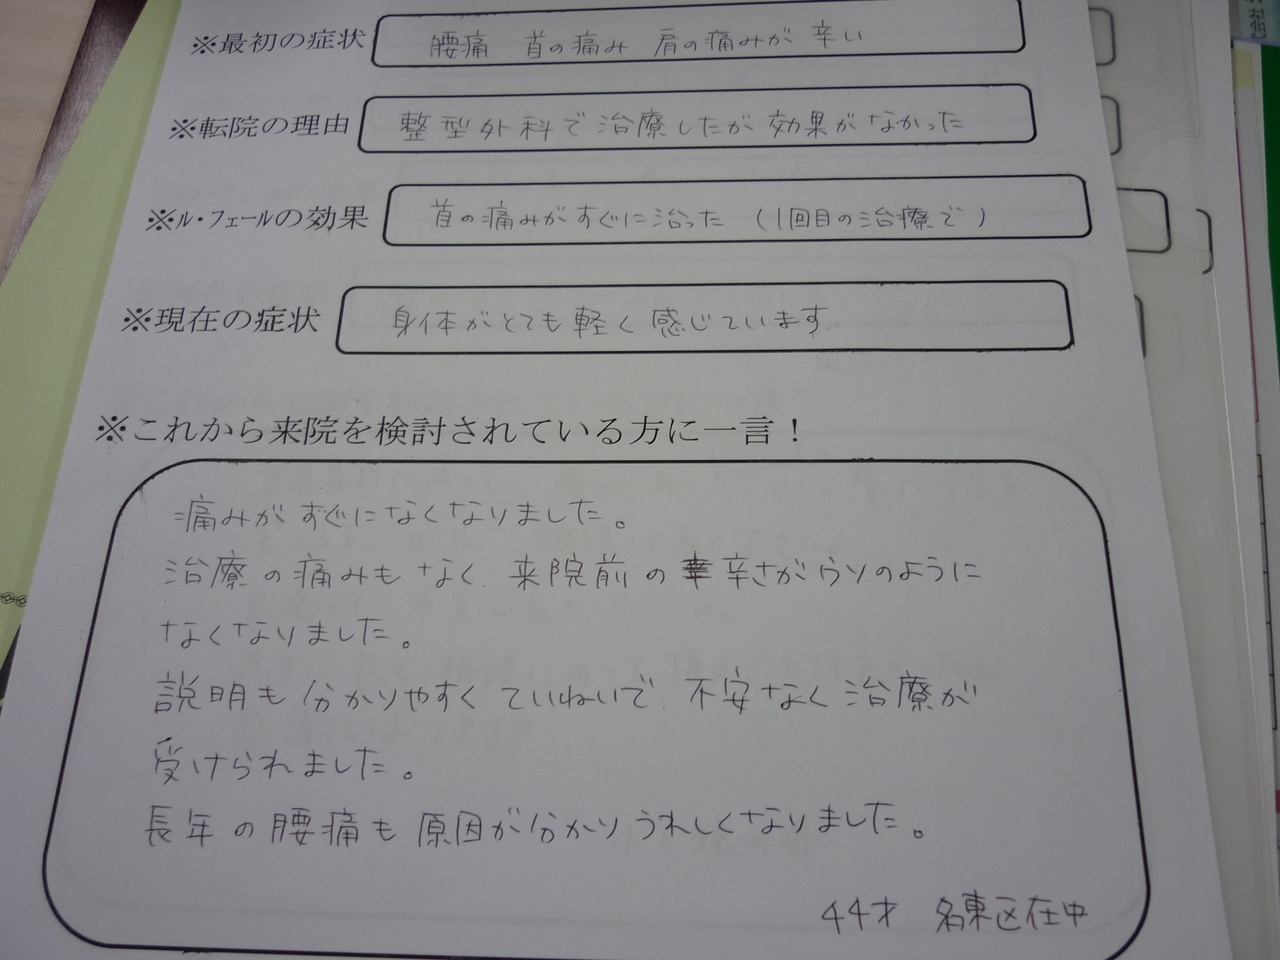 ※最初の症状 腰痛 首の痛み 肩の痛みが 辛い
※転院の理由 整型外科で治療したが効果がなかった
※ﾙ・ﾌｪｰﾙの効果 首の痛みがすぐに治った (1回目の治療で)
※現在の症状 身体がとても軽く感じています
※これから来院を検討されている方に一言！
痛みがすぐになくなりました。
治療の痛みもなく、来院前の辛さがウソのように
なくなりました。
説明も分かりやすくていねいで、不安なく治療が
受けられました。
長年の腰痛も原因が分かりうれしくなりました。
44才 名東区在中